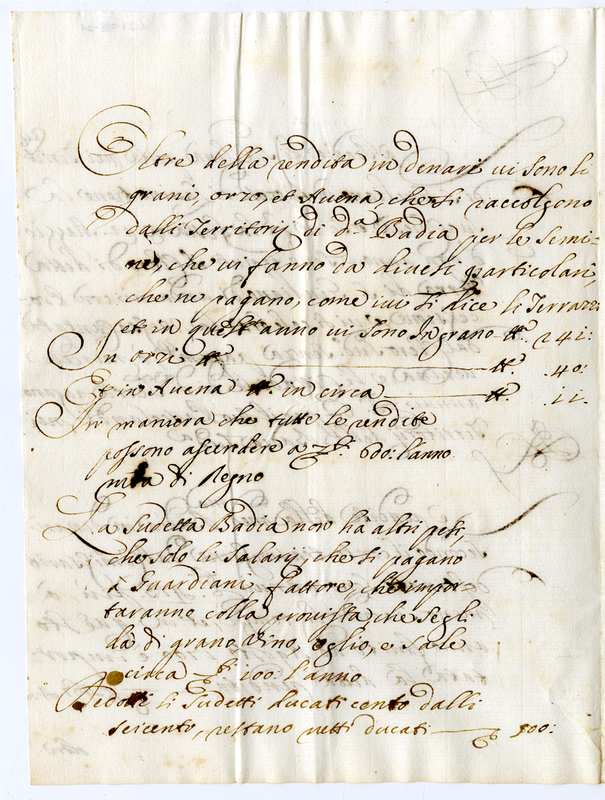 Oltre della rendita in denari vi sono li
grani, orzo, et Avena, che si raccolgono
dalli Territorij di d.ª Badia per le semi-
ne, che vi fanno da diversi particolari,
che ne pagano, come ivi si dice li Terrazzi
et in quest'anno vi sono In grano tt.ª 241:
In orzi tt.ª tt.ª 40:
Et in Avena tt.ª in circa tt.ª 11:
In maniera che tutte le rendite
possono ascendere a 600: l'anno
di Regno
La sudetta Badia non hà altri pesi,
che solo li salarij, che si pagano
à Guardiani fattore, che impor-
taranno colla provista che se gli
dà di grano vino, oglio, e sale
circa 100: l'anno
Dedotti li sudetti ducati cento dalli
seicento, restano netti ducati 500: